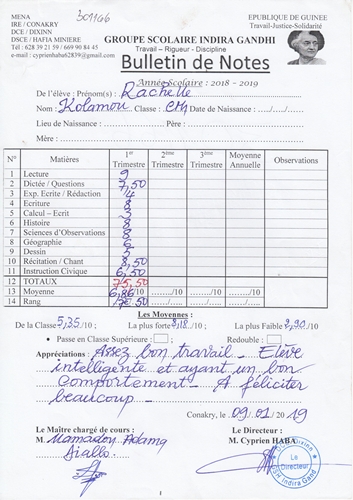 MENA
IRE / CONAKRY
DCE / DIXINN
DSCE / HAFIA MINIERE
Tél : 628 39 21 59 / 669 90 84 45
e-mail : cyprienhaba62839@gmail.com
EPUBLIQUE DE GUINEE
Travail-Justice-Solidarité
GROUPE SCOLAIRE INDIRA GANDHI
Travail – Rigueur - Discipline
Bulletin de Notes
Année Scolaire : 2018 - 2019
De l'élève : Prénom(s) : Rachelle
Nom : Kolamou Classe : CM Date de Naissance : ..../..../....
Lieu de Naissance : Père :
Mère :
N° Matières 1er Trimestre 2ème Trimestre 3ème Trimestre Moyenne Annuelle Observations
1 Lecture 9
2 Dictée / Questions 7,50
3 Exp. Ecrite / Rédaction 4
4 Ecriture 8
5 Calcul – Ecrit 3
6 Histoire 8
7 Sciences d'Observations 8
8 Géographie 6
9 Dessin 5
10 Récitation / Chant 8,50
11 Instruction Civique 6,50
12 TOTAUX 75,50
13 Moyenne 6,86/10 ......../10 ......./10
14 Rang
Les Moyennes :
De la Classe 5,35/10 ; La plus forte 8,18/10 ; La plus Faible 2,90/10
• Passe en Classe Supérieure : ; Redouble :
Appréciations : Assez bon travail - Elève
intelligente et ayant un bon
Comportement - A féliciter
beaucoup -
Conakry, le 09/01/2019
Le Maître chargé de cours : Le Directeur :
M. Mamadou Adama M. Cyprien HABA
Diallo
Le
Directeur